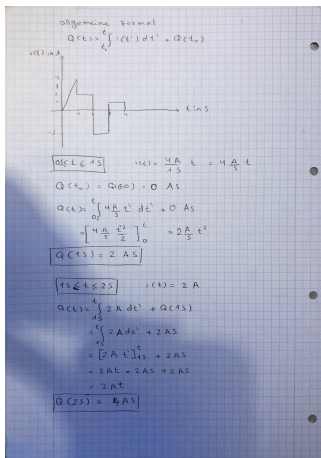 allgemeine Formel
Q(t) = ∫ₜ₀ᵗ i(t') dt' + Q(t₀)
i(t) in A
4
t in s
-2
0s ≤ t ≤ 1s   i(t) = 4A/1s t = 4 A/s t
Q(t₀) = Q(0) = 0 As
Q(t) = ∫₀ₛᵗ 4 A/s t' dt' + 0 As
= [4 A/s t'²/2]₀ᵗ = 2 A/s t²
Q(1s) = 2 As
1s ≤ t ≤ 2s   i(t) = 2 A
Q(t) = ∫₁ₛᵗ 2 A dt' + Q(1s)
= ∫₁ₛᵗ 2 A dt' + 2 As
= [2A t']₁ₛᵗ + 2 As
= 2At - 2As + 2As
= 2At
Q(2s) = 4As